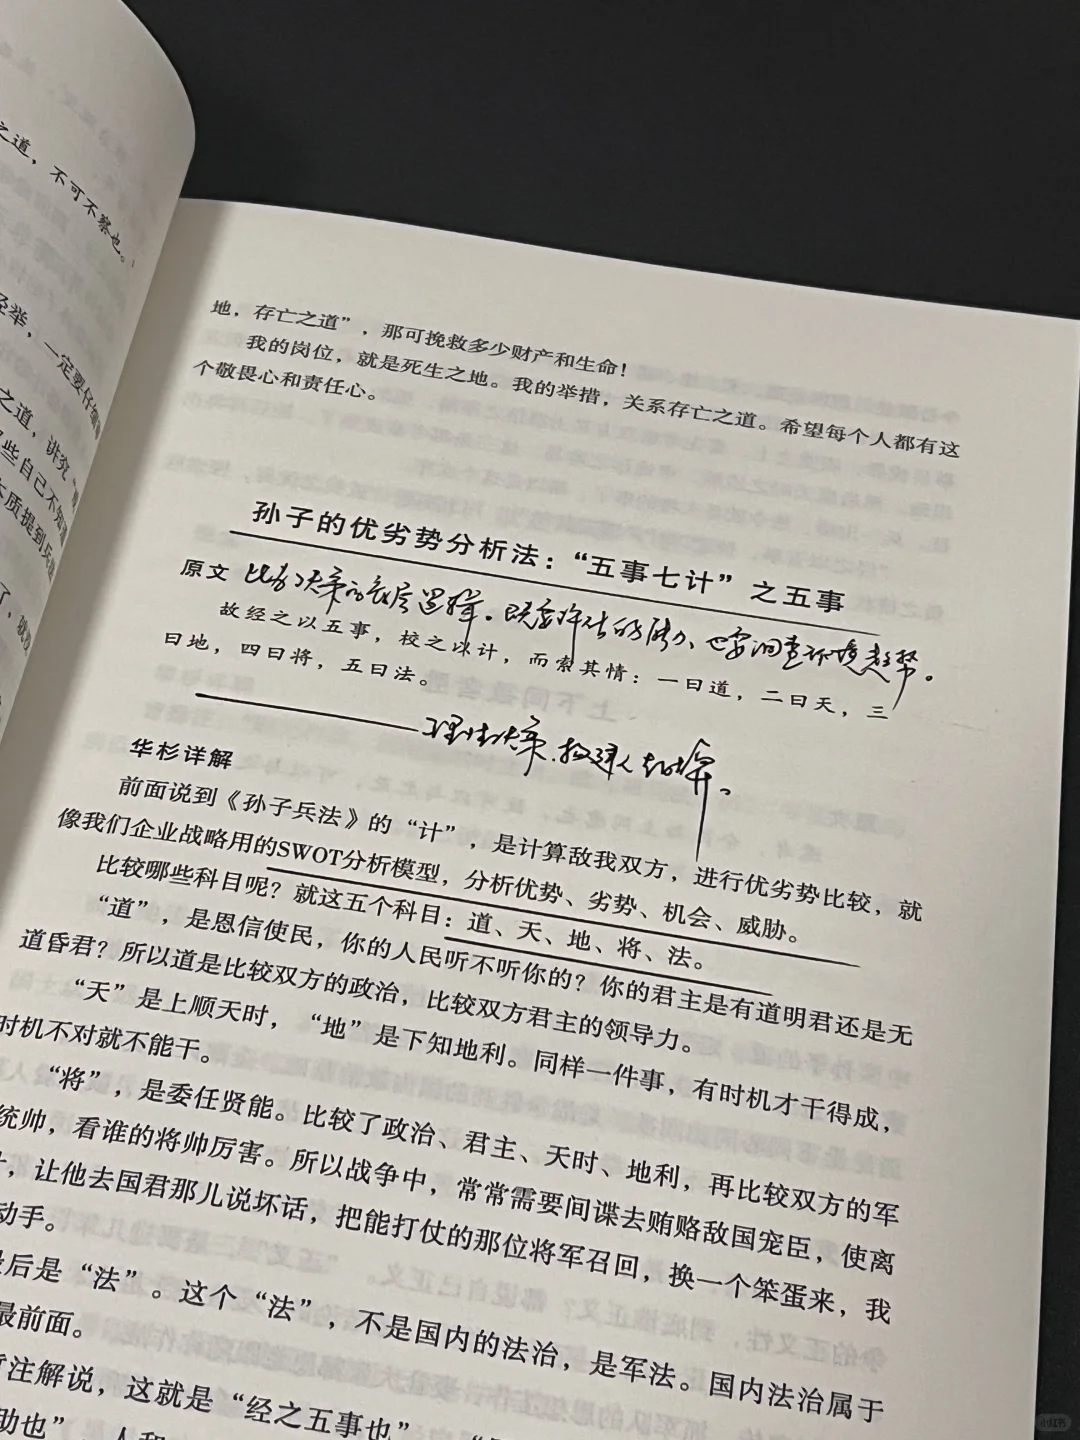 之道，不可不察也。
经举，一定要仔细
之道，讲究“
些自己不知
本质提到兵
了，就
地，存亡之道”，那可挽救多少财产和生命！
我的岗位，就是死生之地。我的举措，关系存亡之道。希望每个人都有这
个敬畏心和责任心。
孙子的优劣势分析法：“五事七计”之五事
原文
故经之以五事，校之以计，而索其情：一曰道，二曰天，三
曰地，四曰将，五曰法。
理性决策，
华杉详解
前面说到《孙子兵法》的“计”，是计算敌我双方，进行优劣势比较，就
像我们企业战略用的SWOT分析模型，分析优势、劣势、机会、威胁。
比较哪些科目呢？就这五个科目：道、天、地、将、法。
“道”，是恩信使民，你的人民听不听你的？你的君主是有道明君还是无
道昏君？所以道是比较双方的政治，比较双方君主的领导力。
“天”是上顺天时，“地”是下知地利。同样一件事，有时机才干得成，
时机不对就不能干。
“将”，是委任贤能。比较了政治、君主、天时、地利，再比较双方的军
统帅，看谁的将帅厉害。所以战争中，常常需要间谍去贿赂敌国宠臣，使离
，让他去国君那儿说坏话，把能打仗的那位将军召回，换一个笨蛋来，我
动手。
后是“法”。这个“法”，不是国内的法治，是军法。国内法治属于
最前面。
注解说，这就是“经之五事也”
助也”，人和